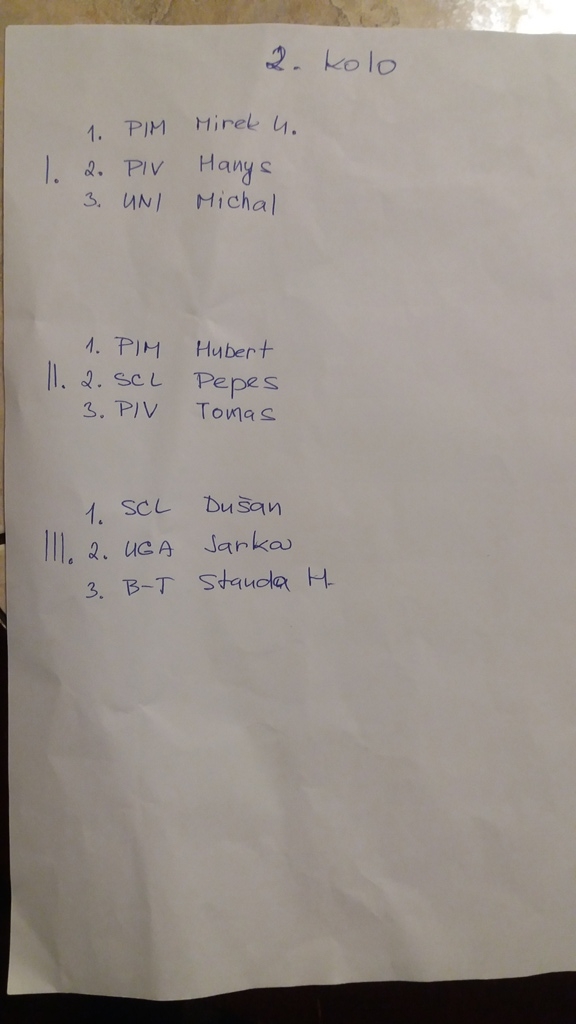 2. kolo
1. PIM Mirek U.
I. 2. PIV Hanys
3. UNI Michal
1. PIM Hubert
II. 2. SCL Pepes
3. PIV Tomas
1. SCL Dušan
III. 2. UGA Jarka
3. B-T Standa H.